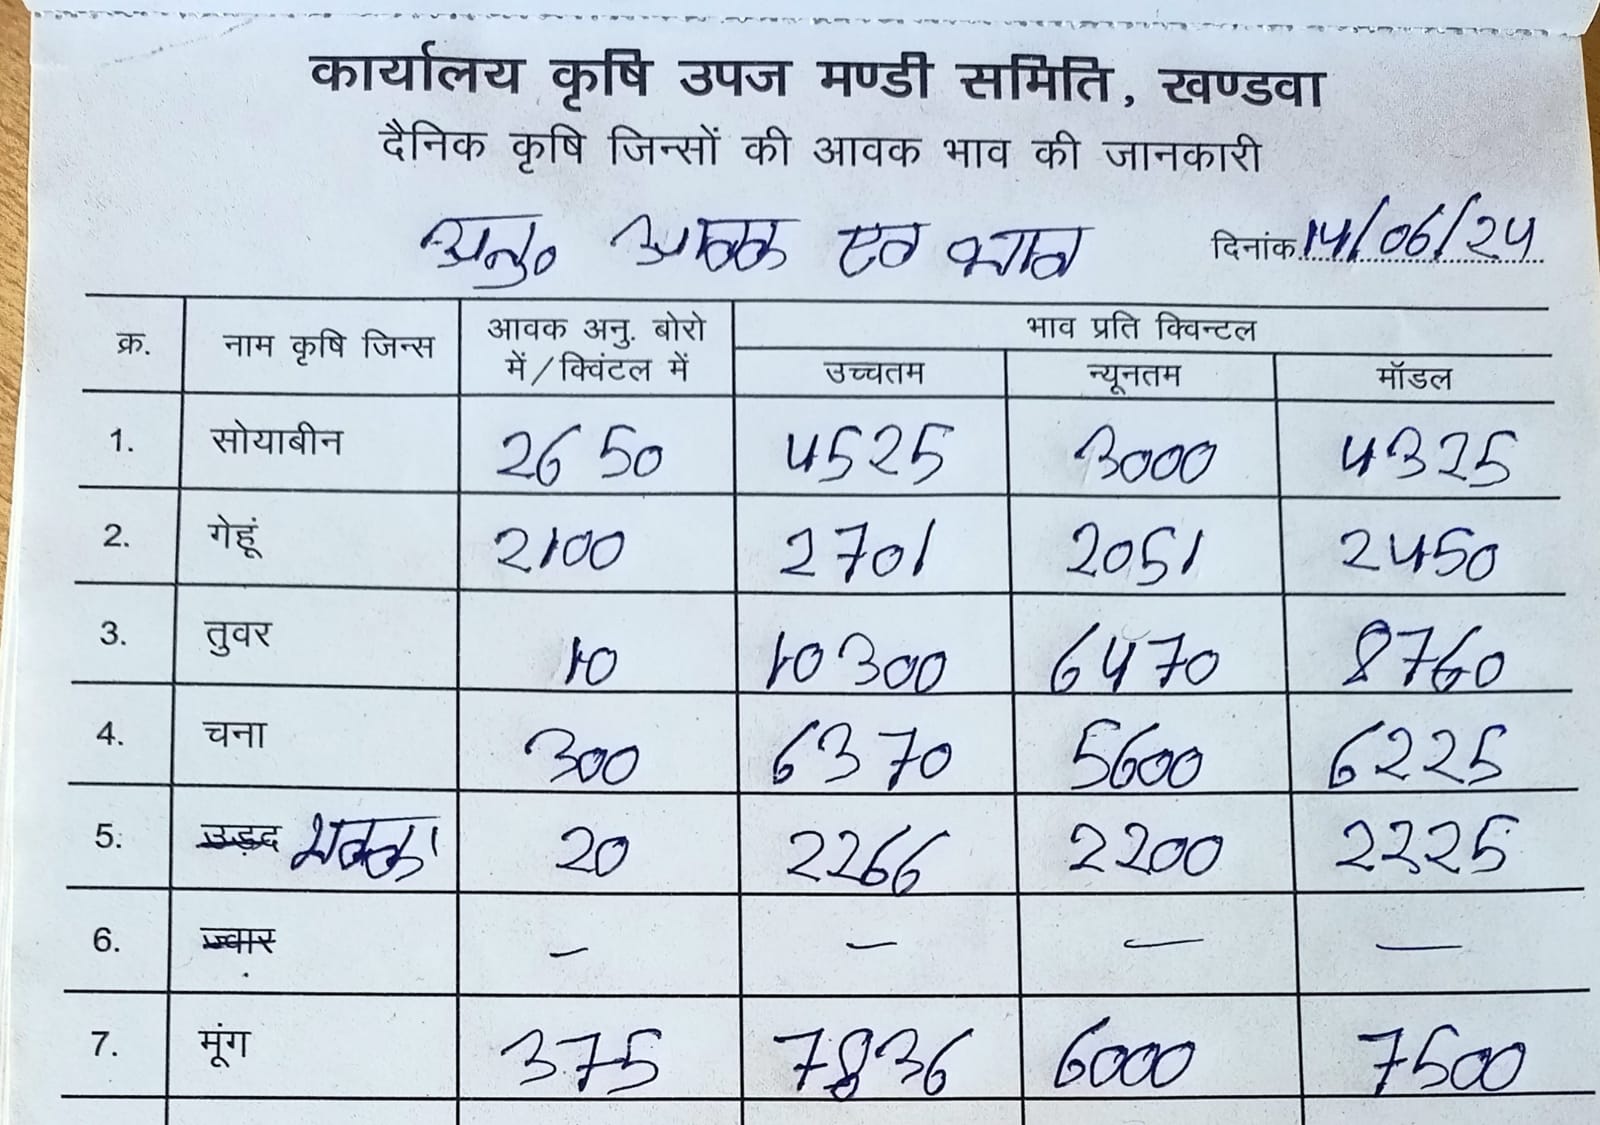 कार्यालय कृषि उपज मण्डी समिति, खण्डवा
दैनिक कृषि जिन्सों की आवक भाव की जानकारी
अनु० आवक एव भाव दिनांक 14/06/24
क्र. नाम कृषि जिन्स आवक अनु. बोरो में/क्विंटल में भाव प्रति क्विन्टल
उच्चतम न्यूनतम मॉडल
1. सोयाबीन 2650 4525 3000 4325
2. गेहूं 2100 2701 2051 2450
3. तुवर 10 10300 6470 8760
4. चना 300 6370 5600 6225
5. उड़द मक्का 20 2266 2200 2225
6. ज्वार – – – –
7. मूंग 375 7836 6000 7500